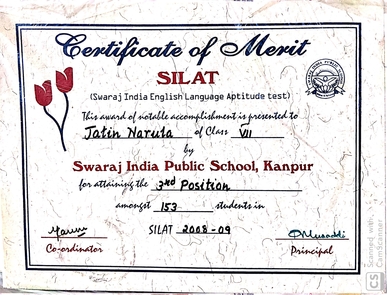 Certificate of Merit
SILAT
(Swaraj India English Language Aptitude test)
This award of notable accomplishment is presented to
Jatin Naruta of Class VII
by
Swaraj India Public School, Kanpur
for attaining the 3rd Position
amongst 153 students in
SILAT 2008-09
Co-ordinator Principal
CS Scanned with CamScanner